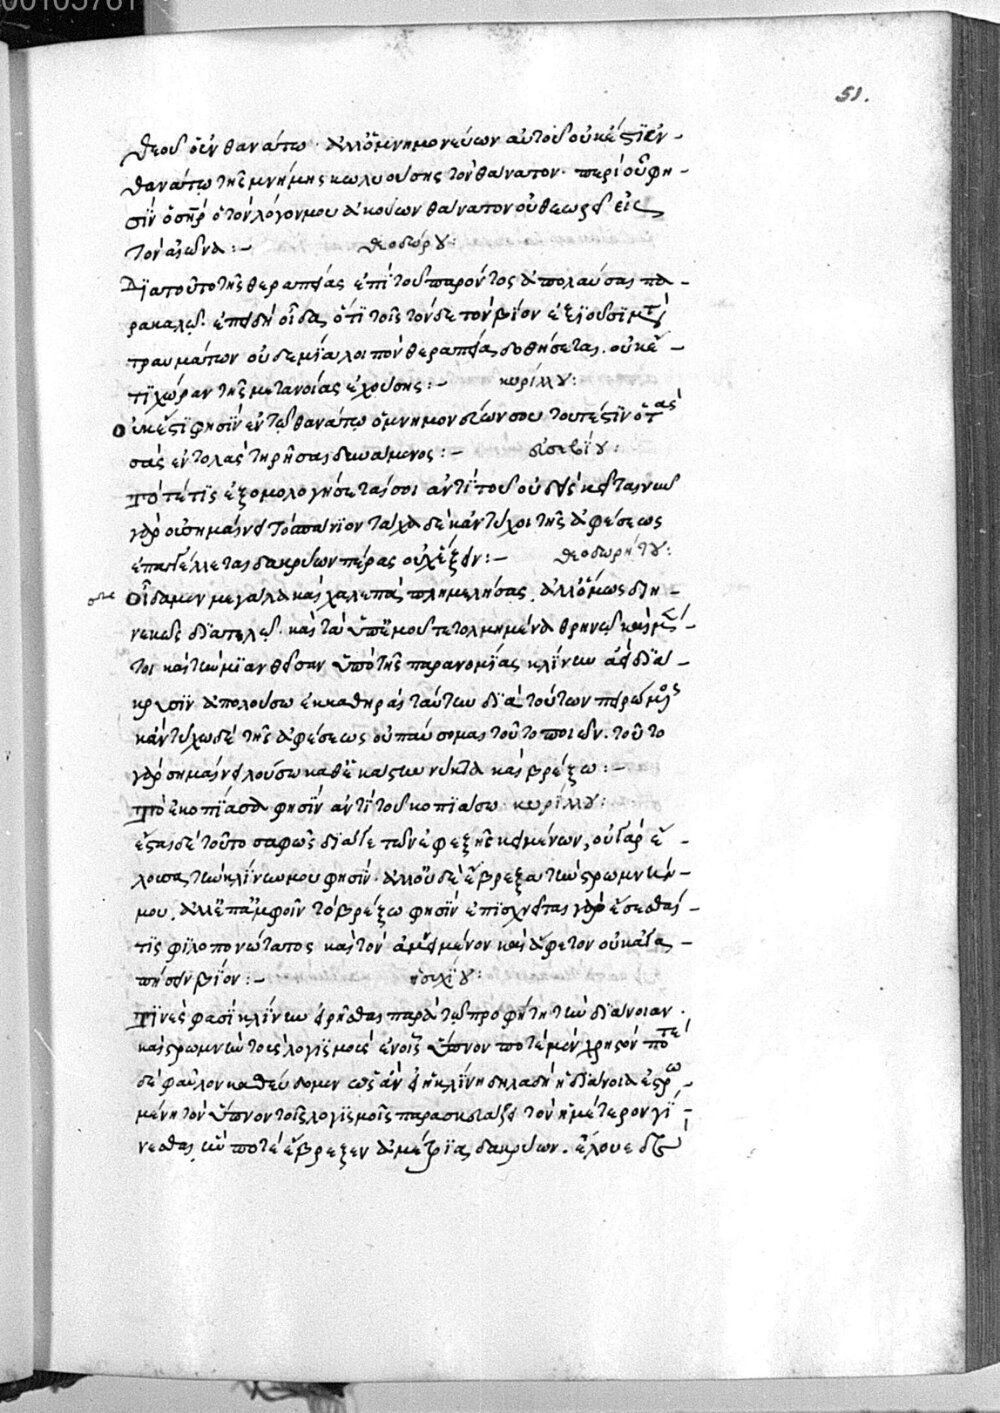 51.
θεοῦ ὁ ἐν θανάτω· ἀλλ' ὁ μνημονεύων αὐτοῦ οὐκ ἔστιν ἐν
θανάτω τῆς μνήμης κωλυούσης τὸν θάνατον· περὶ οὗ φη-
σὶν ὁ σηρ ὁ τὸν λόγον μου ἀκούων θάνατον οὐ θεωρεῖ εἰς
τὸν αἰῶνα:- θεοδώρου:
Διὰ τοῦτο τῆς θεραπείας ἐπὶ τοῦ παρόντος ἀπολαῦσαι πα-
ρακαλεῖ· ἐπειδὴ οἶδας ὅτι τοῖς τόνδε τὸν βίον ἐξιοῦσι μετὰ
τραυμάτων οὐδεμία λοιπὸν θεραπεία δοθήσεται· οὐκέ-
τι χώραν τῆς μετανοίας ἐχούσης:- κυρίλλου:
Οὐκ ἔστι φησὶν ἐν τῶ θανάτω ὁ μνημονεύων σου τουτέστιν ὁ τὰς
σὰς ἐντολὰς τηρῆσαι δυνάμενος:- εὐσεβίου:
Τότε τίς ἐξομολογήσεταί σοι ἀντὶ τοῦ οὐδεὶς κεῖται νῦν
γὰρ οὐ σημαίνει τὸ σπάνιον τάχα δὲ κἂν τύχοι τῆς ἀφέσεως
ἐπαγγέλλεται δακρύων πέρας οὐχ ἕξειν:- θεοδωρήτου:
Οἶδα μὲν μεγάλα καὶ χαλεπὰ πλημμελήσας, ἀλλ' ὅμως διη-
νεκῶς διατελῶ· καὶ τὰ ὑπ' ἐμοῦ τετολμημένα θρηνῶ καὶ μέν-
τοι καὶ τὴν μιανθεῖσαν ὑπὸ τῆς παρανομίας κλίνην ἀεὶ δια-
κρυσιν ἀπολούσω ἐκκαθῆραι ταύτην διὰ τούτων πειρώμενος
κἂν τύχω δὲ τῆς ἀφέσεως οὐ παύσομαι τοῦτο ποιῶν· τοῦτο
γὰρ σημαίνει λούσω καθ' ἑκάστην νύκτα καὶ βρέξω:-
Τὸ ἐκοπίασα φησὶν ἀντὶ τοῦ κοπιάσω κυρίλλου:
ἔσται δὲ τοῦτο σαφὲς διά γε τῶν ἐφεξῆς κειμένων, οὐ γὰρ ἔ-
λουσα τὴν κλίνην μου φησίν· ἀλλ' οὐδὲ ἔβρεξα τὴν στρωμνήν
μου, ἀλλ' ἐπ' ἀμφοῖν τὸ βρέξω φησὶν ἐπισχνεῖται γὰρ ἔσεσθαί
τις φιλοπονώτατος καὶ τὸν ἀμειμένον καὶ ἄφετον οὐκ ἀγα-
πήσειν βίον:- ἡσυχίου:
Τινές φασι κλίνην εἰρῆσθαι παρὰ τῶ προφήτη τὴν διάνοιαν·
καὶ στρωμνὴν τοὺς λογισμοὺς ἐν οἷς ὕπνον ποτὲ μὲν χρηστὸν ποτὲ
δὲ φαῦλον καθεύδομεν ὡς ἂν ἡ κλίνη δηλαδὴ ἡ διάνοια ἐστρω-
μένη τὸν ὕπνον τοῖς λογισμοῖς παρασκευάζει τὸν ἡμέτερον γί-
νεσθαι, ἥν ποτε ἔβρεξεν ἀμετρία δακρύων· ἔλουε δὲ